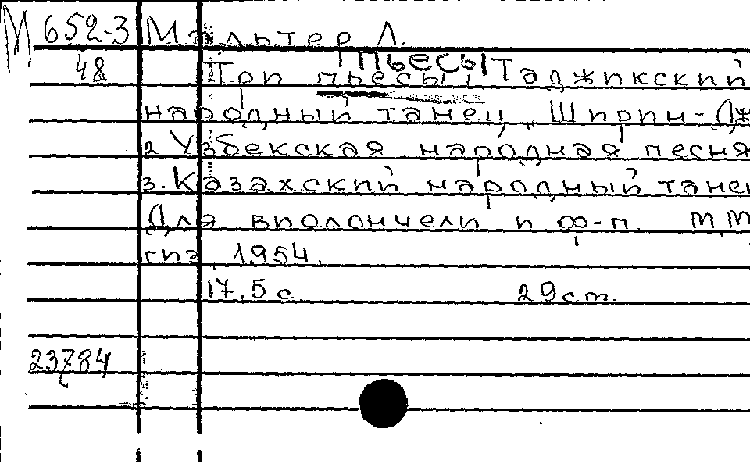 М 652-3 Мальтер Л.
пьесы
48 Три пьесы Таджикский
народный танец „Ширин-Дж
2 Узбекская народная песня
3. Казахский народный танец
Для виолончели и ф-п. М М
гиз, 1954.
17,5 с. 29 ст.
23784